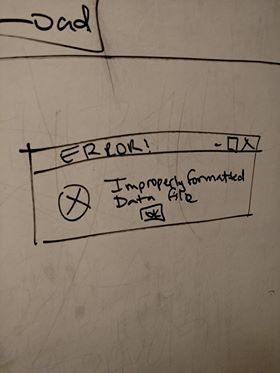 oad
ERROR!
Improperly formatted
Data file
OK